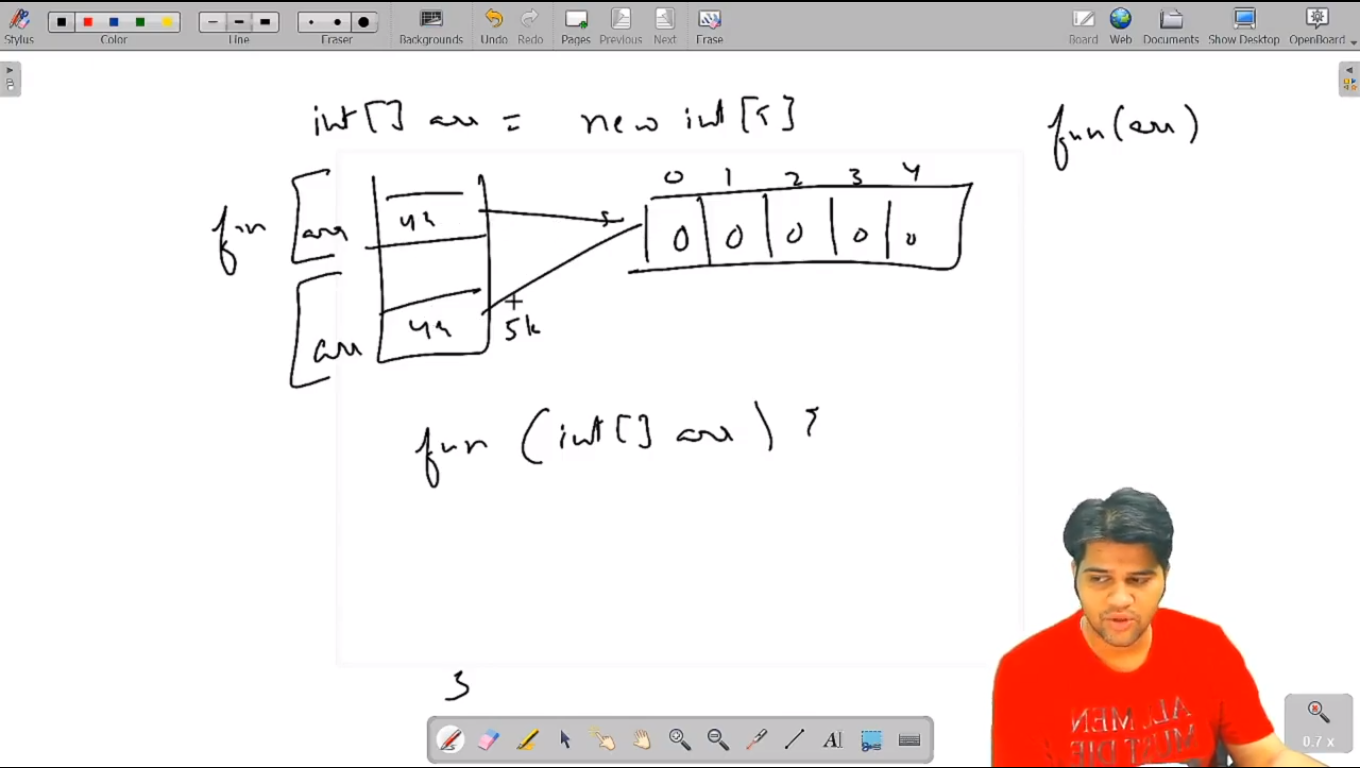 Stylus Color Line Eraser Backgrounds Undo Redo Pages Previous Next Erase Board Web Documents Show Desktop OpenBoard
int[] arr = new int[5]
fun(arr)
0 1 2 3 4
fun arr 4k
0 0 0 0 0
arr 4k 5k
fun (int[] arr) {
}
ALL MEN
MUST DIE
0.7 x